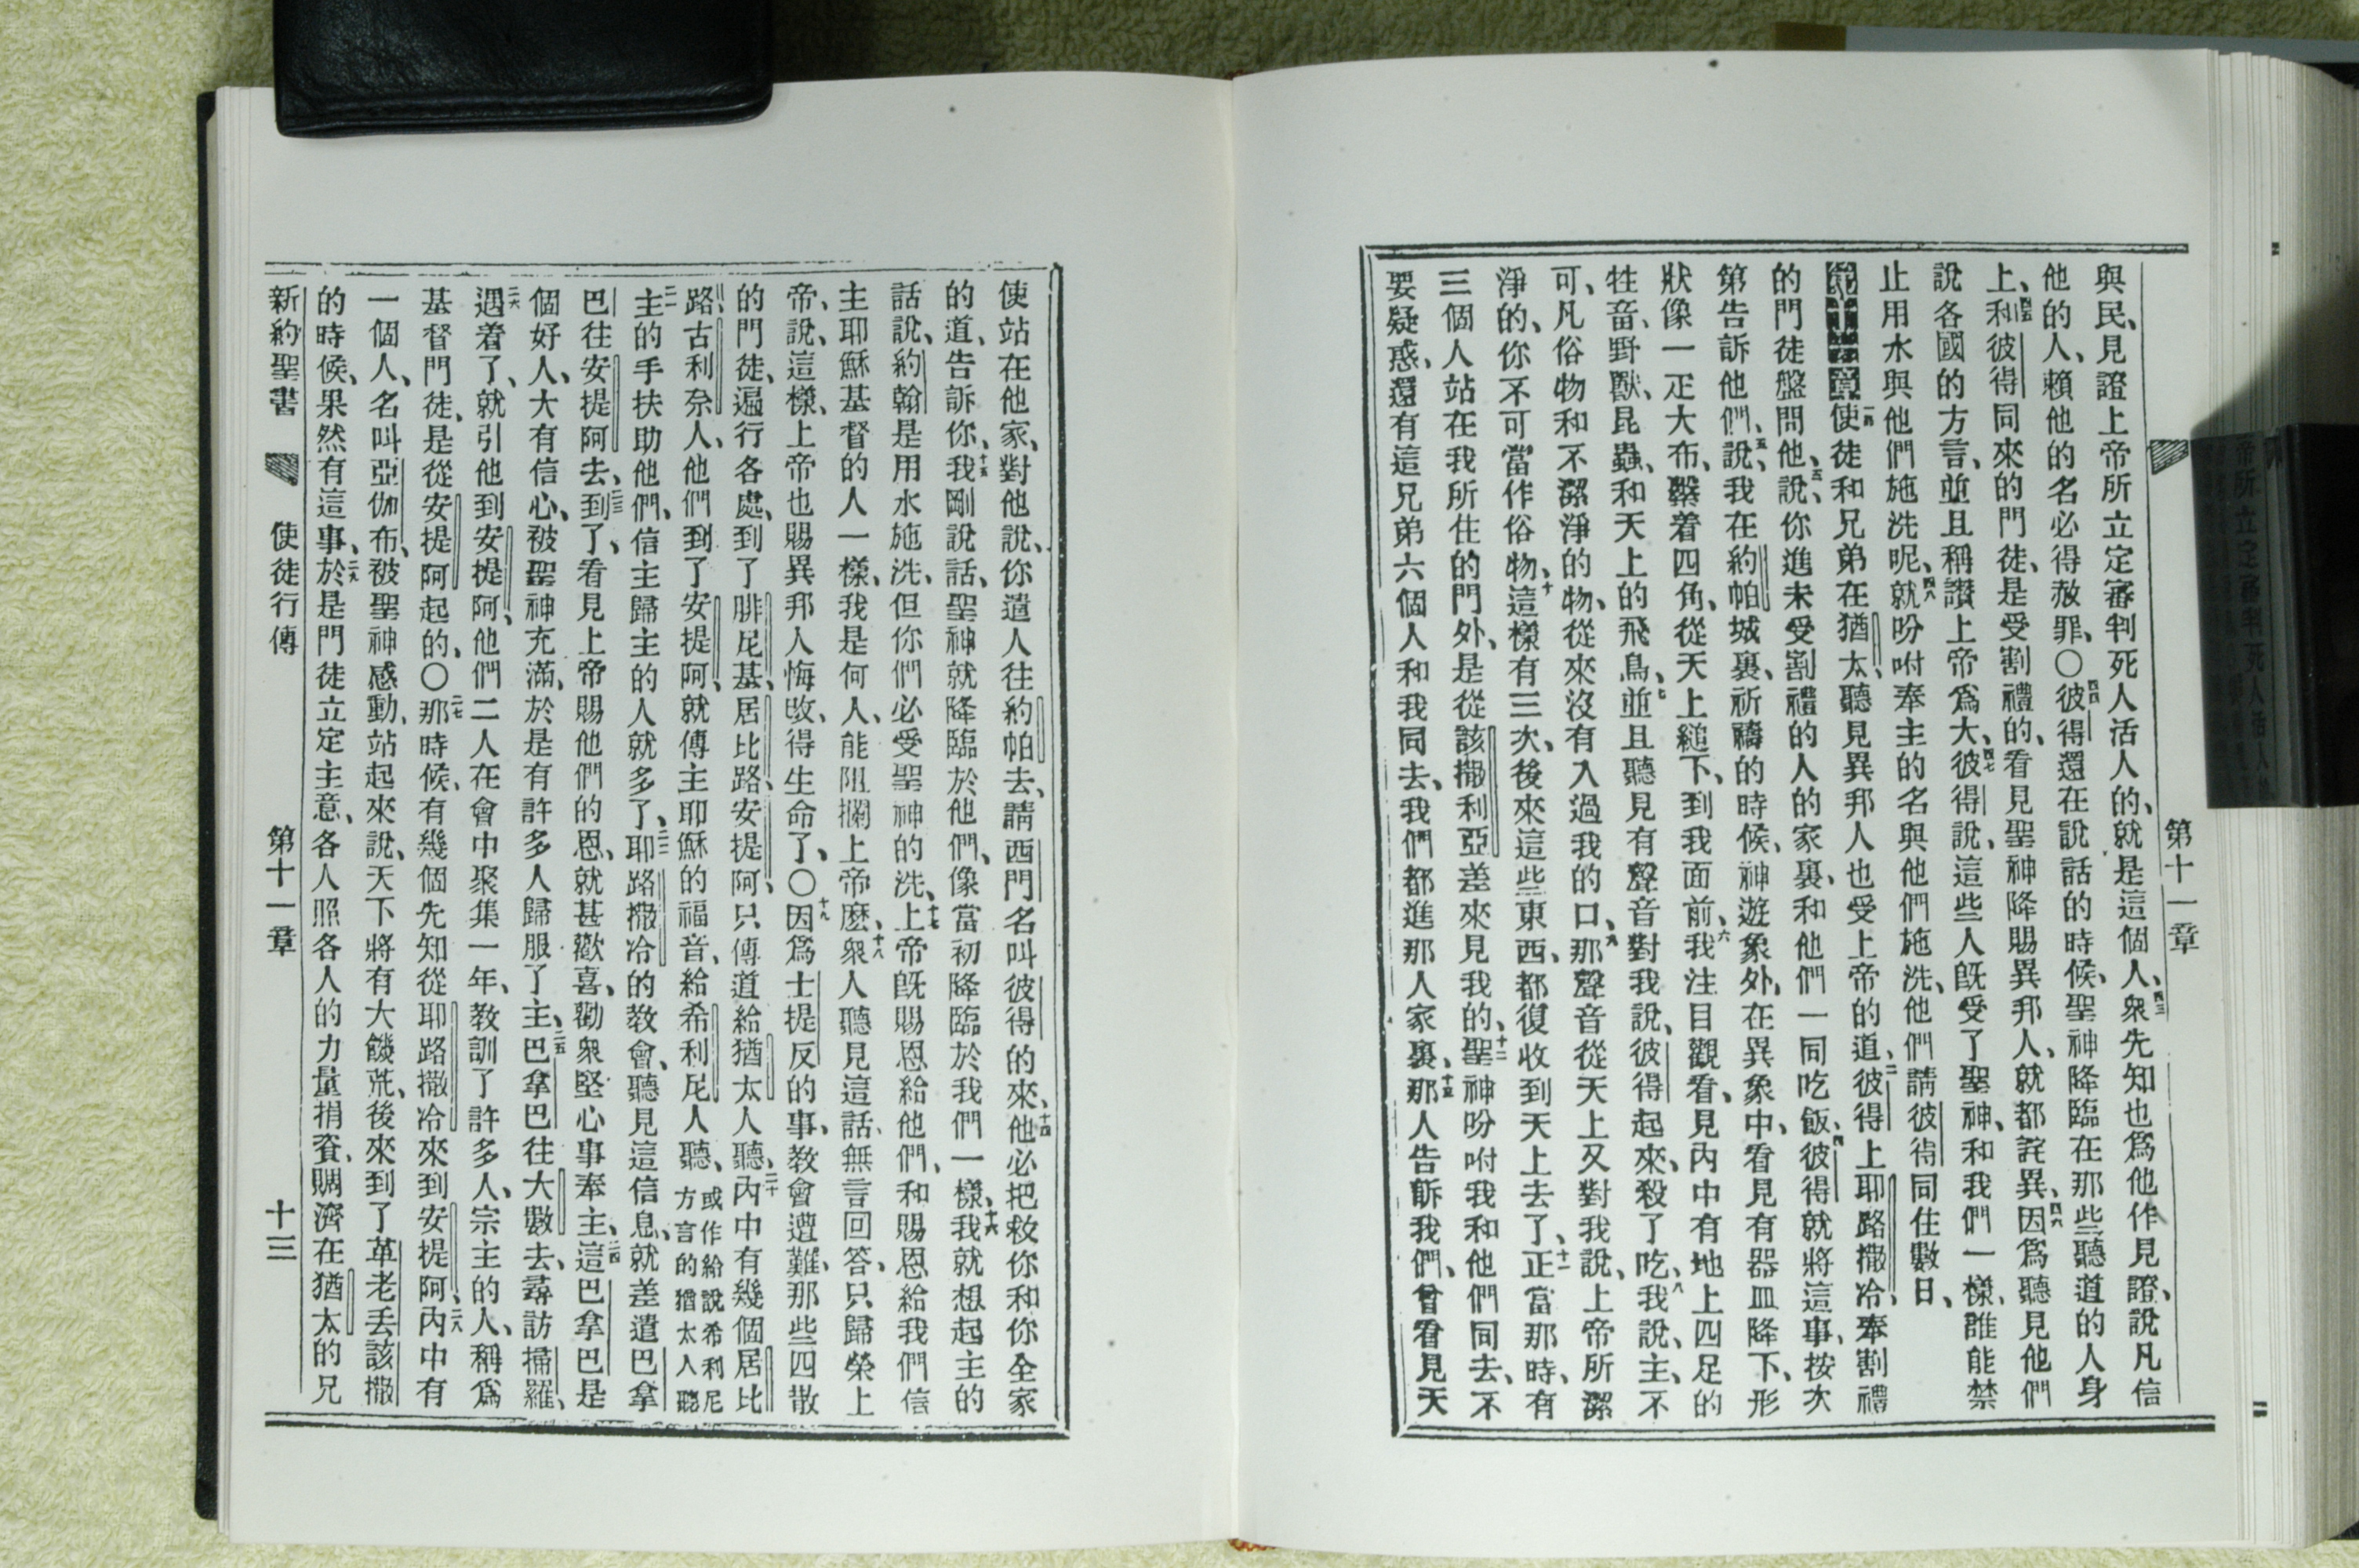 第十一章
與民、見證上帝所立定審判死人活人的、就是這個人、四三衆先知也爲他作見證、說凡信
他的人、賴他的名必得赦罪、○四四彼得還在說話的時候、聖神降臨在那些聽道的人身
上、四五和彼得同來的門徒、是受割禮的、看見聖神降賜異邦人、就都詫異、四六因爲聽見他們
說各國的方言、並且稱讚上帝爲大、四七彼得說、這些人旣受了聖神、和我們一樣、誰能禁
止用水與他們施洗呢、四八就吩咐奉主的名與他們施洗、他們請彼得同住數日、
第十一章 一使徒和兄弟在猶太、聽見異邦人也受上帝的道、二彼得上耶路撒冷、奉割禮
的門徒盤問他、三說、你進未受割禮的人的家裏、和他們一同吃飯、四彼得就將這事、按次
第告訴他們、五說、我在約帕城裏、祈禱的時候、神遊象外、在異象中、看見有器皿降下、形
狀像一疋大布、繫着四角、從天上縋下、到我面前、六我注目觀看、見內中有地上四足的
牲畜、野獸、昆蟲、和天上的飛鳥、七並且聽見有聲音對我說、彼得起來、殺了吃、八我說、主、不
可、凡俗物和不潔淨的物、從來沒有入過我的口、九那聲音從天上又對我說、上帝所潔
淨的、你不可當作俗物、十這樣有三次、後來這些東西、都復收到天上去了、十一正當那時、有
三個人站在我所住的門外、是從該撒利亞差來見我的、十二聖神吩咐我和他們同去、不
要疑惑、還有這兄弟六個人和我同去、我們都進那人家裏、十三那人告訴我們、曾看見天
使站在他家、對他說、你遣人往約帕去、請西門名叫彼得的來、十四他必把救你和你全家
的道、告訴你、十五我剛說話、聖神就降臨於他們、像當初降臨於我們一樣、十六我就想起主的
話說、約翰是用水施洗、但你們必受聖神的洗、十七上帝旣賜恩給他們、和賜恩給我們信
主耶穌基督的人一樣、我是何人、能阻攔上帝麽、十八衆人聽見這話、無言回答、只歸榮上
帝、說、這樣、上帝也賜異邦人悔改、得生命了、○十九因爲士提反的事、教會遭難、那些四散
的門徒、遍行各處、到了腓尼基、居比路、安提阿、只傳道給猶太人聽、二十內中有幾個居比
路古利奈人、他們到了安提阿、就傳主耶穌的福音、給希利尼人聽、或作給說希利尼方言的猶太人聽
二一主的手扶助他們、信主歸主的人就多了、二二耶路撒冷的教會、聽見這信息、就差遣巴拿
巴往安提阿去、二三到了、看見上帝賜他們的恩、就甚歡喜、勸衆堅心事奉主、二四這巴拿巴是
個好人、大有信心、被聖神充滿、於是有許多人歸服了主、二五巴拿巴往大數去、尋訪掃羅、
二六遇着了、就引他到安提阿、他們二人在會中聚集一年、教訓了許多人、宗主的人、稱爲
基督門徒、是從安提阿起的、○二七那時候、有幾個先知從耶路撒冷來到安提阿、二八內中有
一個人、名叫亞伽布、被聖神感動、站起來說、天下將有大饑荒、後來到了革老丢該撒
的時候、果然有這事、二九於是門徒立定主意、各人照各人的力量捐資、賙濟在猶太的兄
新約聖書 使徒行傳 第十一章 十三